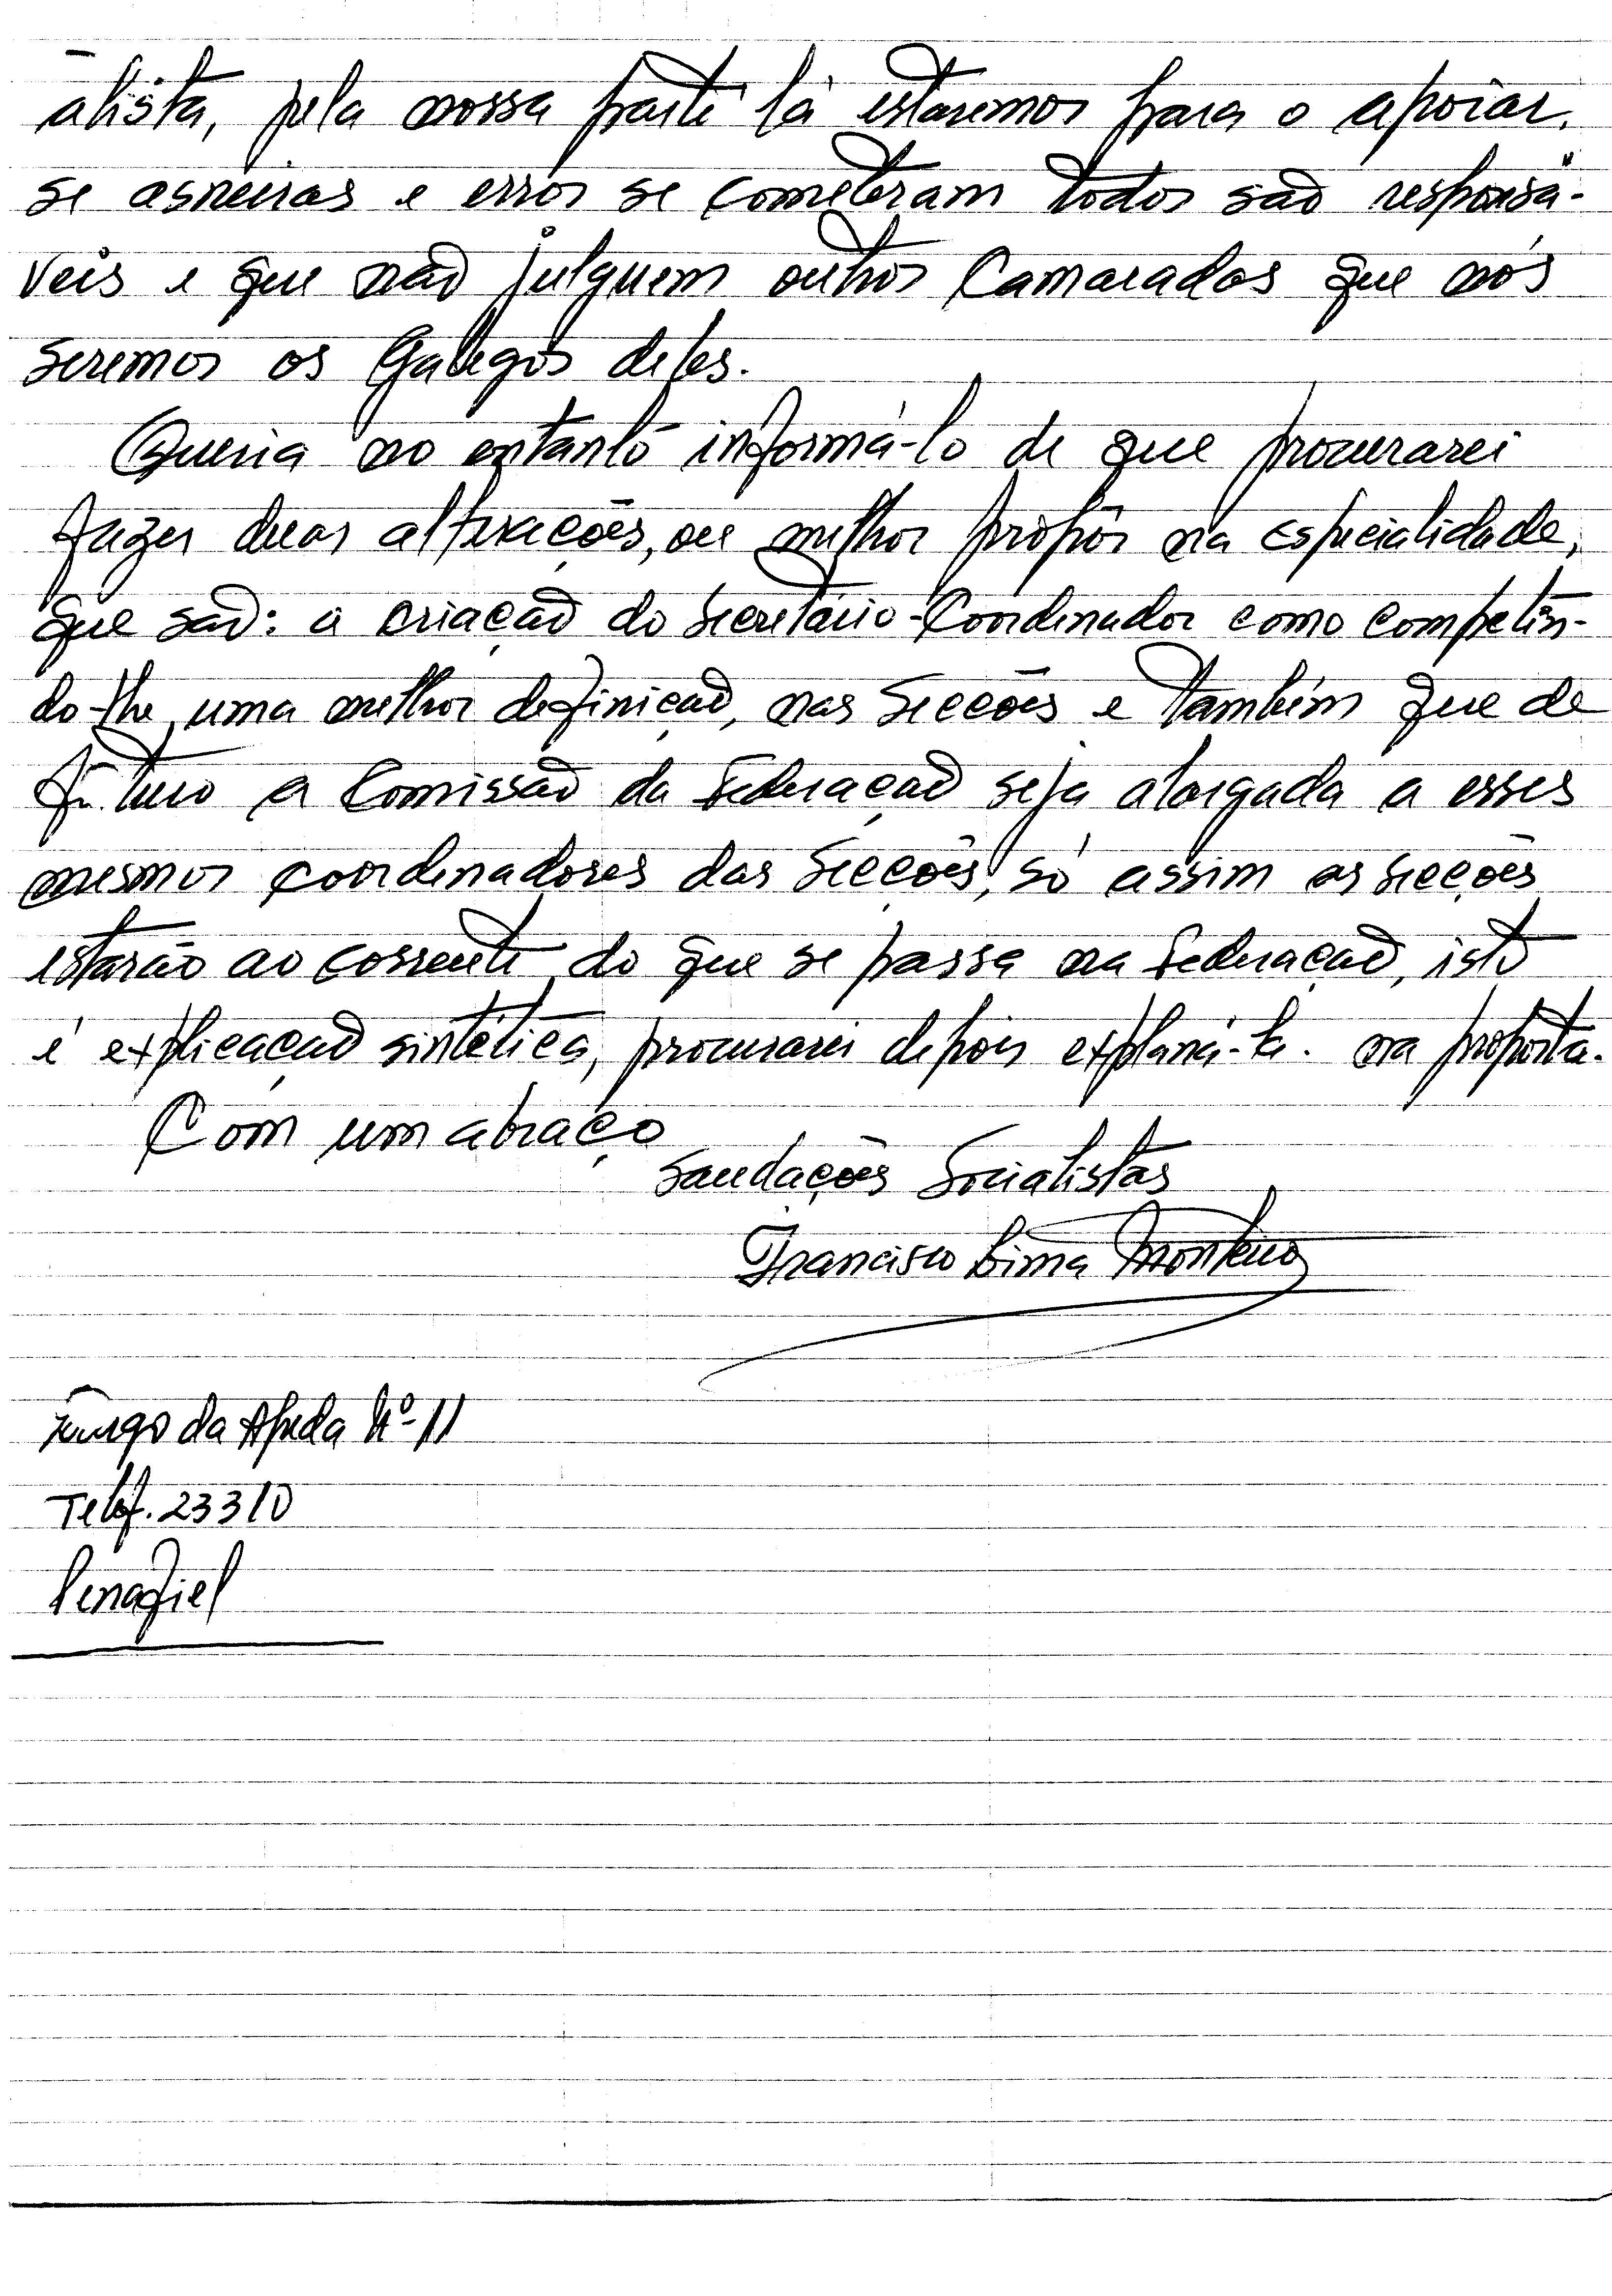 alista, pela nossa parte lá estaremos para o apoiar,
se asneiras e erros se cometeram todos são responsá-
veis e que não julguem outros Camaradas que nós
seremos os Galegos deles.
Queria no entanto informá-lo de que procurarei
fazer duas alterações, ou melhor propôr na especialidade,
que são: a criação do Secretário-Coordenador como competên-
do-lhe, uma melhor definição, nas Secções e também que de
futuro a Comissão da Federação seja alargada a esses
mesmos coordenadores das Secções, só assim as secções
estarão ao corrente do que se passa na Federação, isto
é explicação sintética, procurarei depois explaná-la. na proposta.
Com um abraço
Saudações Socialistas
Francisco Lima Monteiro
da Nº-11
Telef. 23310
Penafiel